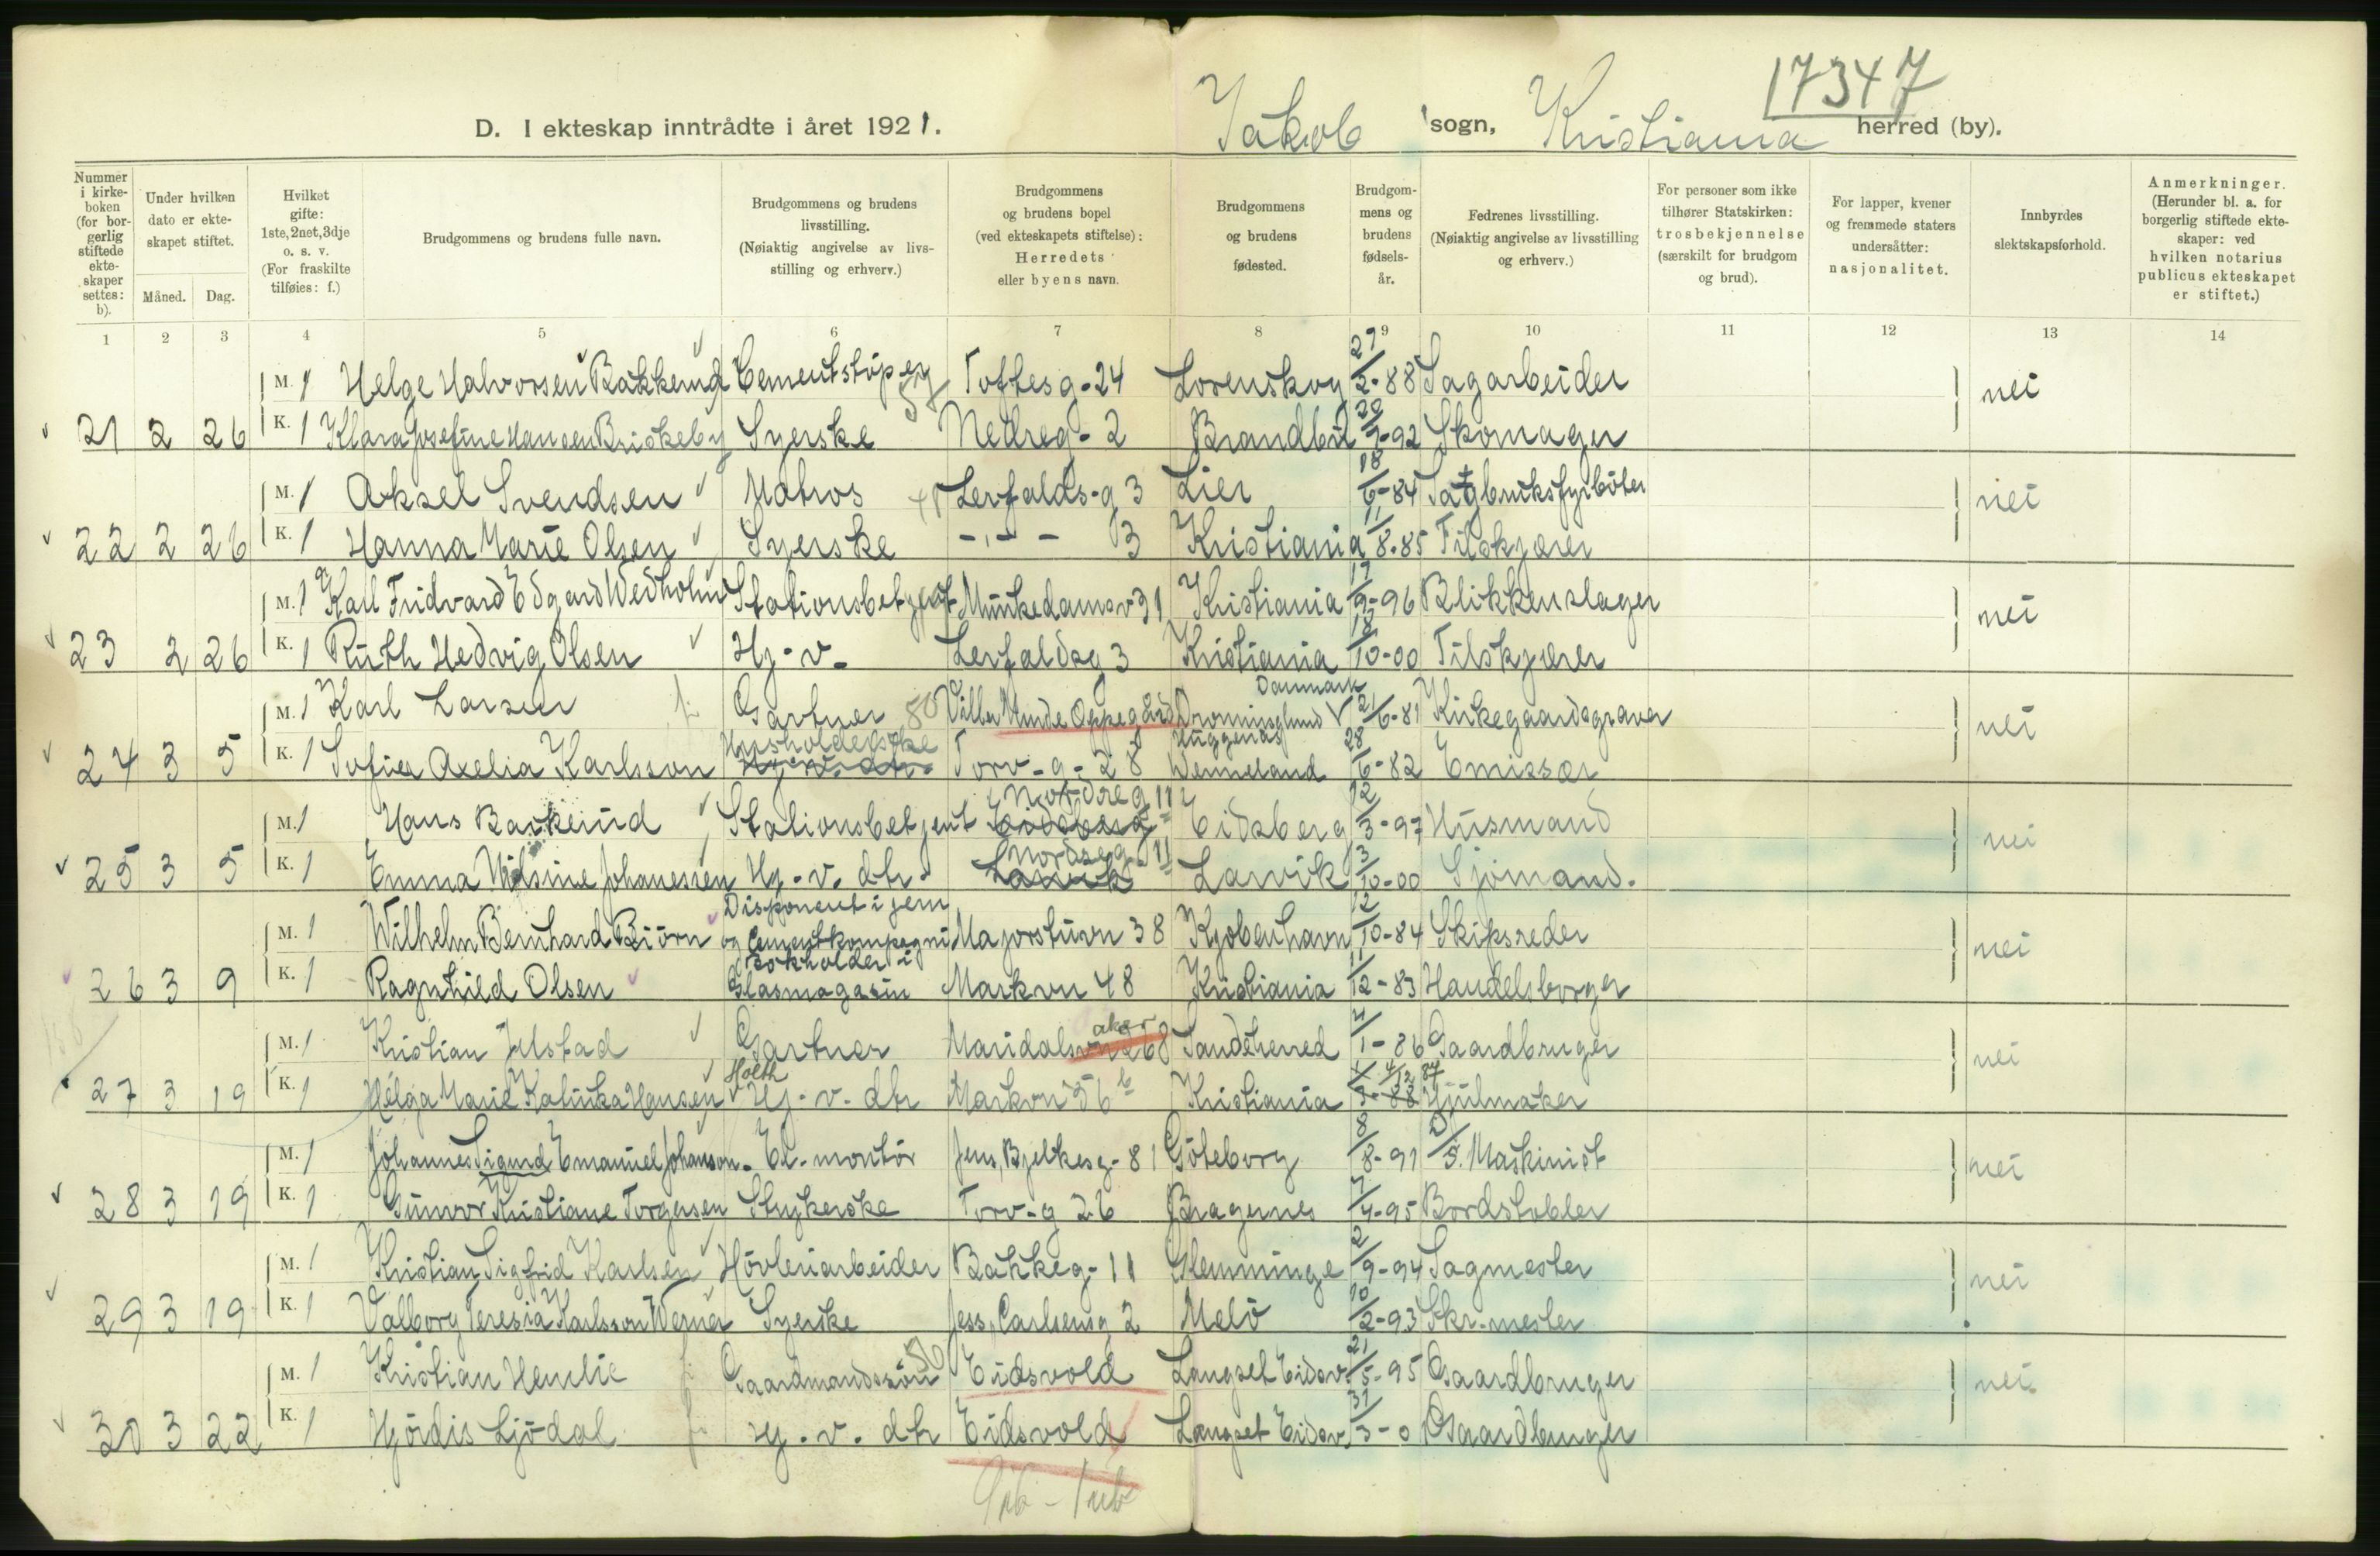 17347
D. I ekteskap inntrådte i året 1921. Jakob sogn, Kristiania herred (by).
Nummer i kirke- boken (for bor- gerlig stiftede ekte- skaper settes: b).
Under hvilken dato er ekte- skapet stiftet.
Måned. Dag.
Hvilket gifte: 1ste, 2net, 3dje o. s. v. (For fraskilte tilføies: f.)
Brudgommens og brudens fulle navn.
Brudgommens og brudens livsstilling. (Nøiaktig angivelse av livs- stilling og erhverv.)
Brudgommens og brudens bopel (ved ekteskapets stiftelse): Herredets eller byens navn.
Brudgommens og brudens fødested.
Brudgom- mens og brudens fødsels- år.
Fedrenes livsstilling. (Nøiaktig angivelse av livsstilling og erhverv.)
For personer som ikke tilhører Statskirken: trosbekjennelse (særskilt for brudgom og brud).
For lapper, kvener og fremmede staters undersåtter: nasjonalitet.
Innbyrdes slektskapsforhold.
Anmerkninger. (Herunder bl. a. for borgerlig stiftede ekte- skaper: ved hvilken notarius publicus ekteskapet er stiftet.)
1 2 3 4 5 6 7 8 9 10 11 12 13 14
M. 1 Helge Halvorsen Bakkerud Cementstøper Toftesg-24 Lørenskog 29/2-88 Sagarbeider nei
21 2 26 K. 1 Klara Josefine Hansen Briskeby Syerske Nedreg-2 Brandbu 20/9-92 Skomager
M. 1 Aksel Svendsen Matros Lerfalds-g 3 Lier 18/6-84 Sagbruksfyrbøter nei
22 2 26 K. 1 Hanna Marie Olsen Syerske -,- - 3 Kristiania 11/8-85 Filskjærer
M. 1 Karl Fridvard Edgard Wedholm Stationsbetjent Munkedamsv 31 Kristiania 17/9-96 Blikkenslager nei
23 2 26 K. 1 Ruth Hedvig Olsen Hj-v. Lerfaldsg 3 Kristiania 18/10-00 Filskjærer
Danmark
M. 1 Karl Larsen Gartner 80 Villa Minde Oppegård Dronninglund 21/6-81 Kirkegaardsgraver nei
Husholderske
24 3 5 K. 1 Sofie Axelia Karlsson Torv-g-28 Huggenäs Wermeland 28/6-82 Emissær
Nordreg 11
M. 1 Hans Baskerud Stationsbetjent Eidsberg Eidsberg 12/3-97 Husmand nei
Nordreg. 11
25 3 5 K. 1 Emma Nilsine Johanessen Hj-v. dtr. Larvik Larvik 3/10-00 Sjømand.
Disponent i jern
M. 1 Wilhelm Bernhard Biörn og Cementkompagni Majorstuvn 38 Kjøbenhavn 12/10-84 Skipsreder nei
Bokholder i
26 3 9 K. 1 Ragnhild Olsen Glasmagasin Markvn 48 Kristiania 11/12-83 Handelsborger
aker
M. 1 Kristian Ulstad Gartner Maridalsvn 268 Sandeherred 4/1-86 Gaardbruger nei
Holth 4/12 87
27 3 19 K. 1 Helga Marie Katinka Hansen Hj-v-dtr Markvn 56 b Kristiania Hjulmaker
M. 1 Johannes Sigurd Emanuel Johanson. El-montør Jens Bjelkesg-81 Göteborg 8/8-91 D/S. Maskinist nei
28 3 19 K. 1 Gunvor Kristiane Torgersen Strykerske Torv-g 26 Bragernes 7/4-95 Bordstabler
M. 1 Kristian Sigfrid Karlsen Høvleriarbeider Bakkeg-11 Glemminge 2/9-94 Sagmester nei
29 3 19 K. 1 Valborg Teresia Karlsson Werner Syerske Jess Carlsensg 2 Melö 10/2-93 Skr.mester
M. 1 Kristian Henlie Gaardmandssøn 50 Eidsvold Langset Eidsv. 21/5-95 Gaardbruger nei
30 3 22 K. 1 Hjördis Ljödal Hj. v. dtr Eidsvold Langset Eidsv. 31/3-0 Gaardbruger